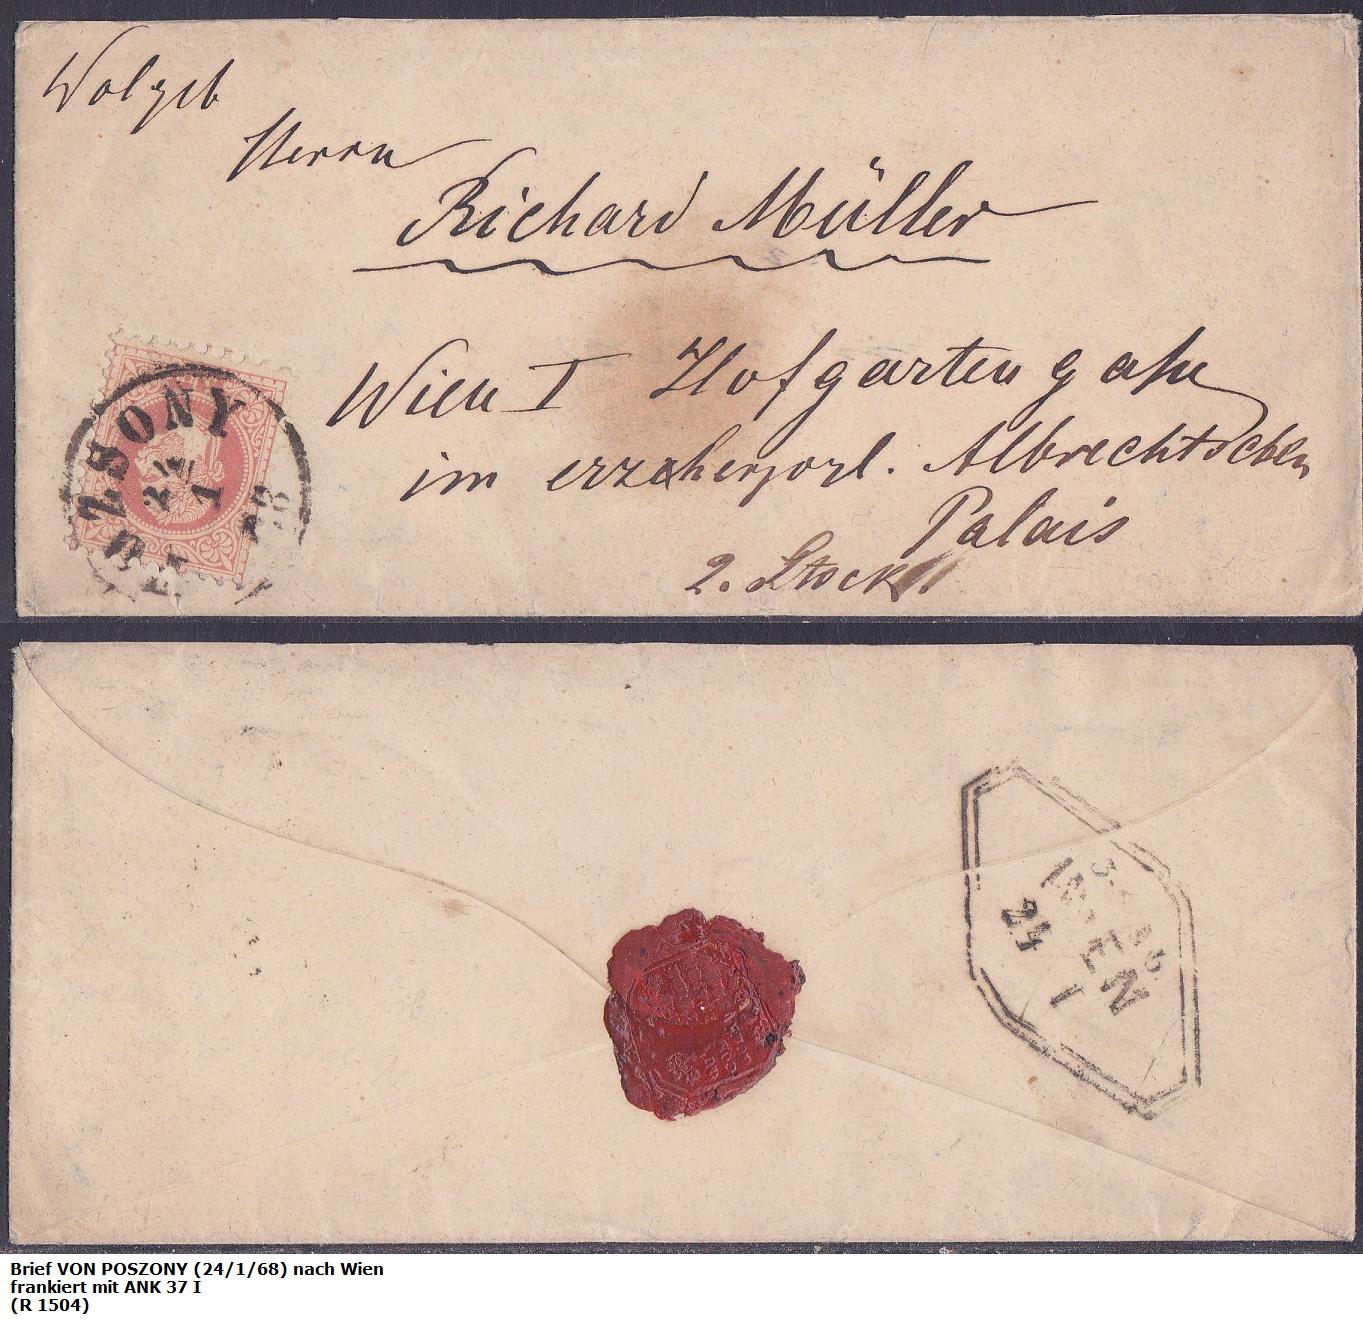 Wolgeb
Herrn
Richard Müller
Wien I Hofgartengasse
im erzherzogl. Albrechtschen
Palais
2. Stock.
POZSONY
24
1
WIEN
24 1
Brief VON POSZONY (24/1/68) nach Wien
frankiert mit ANK 37 I
(R 1504)